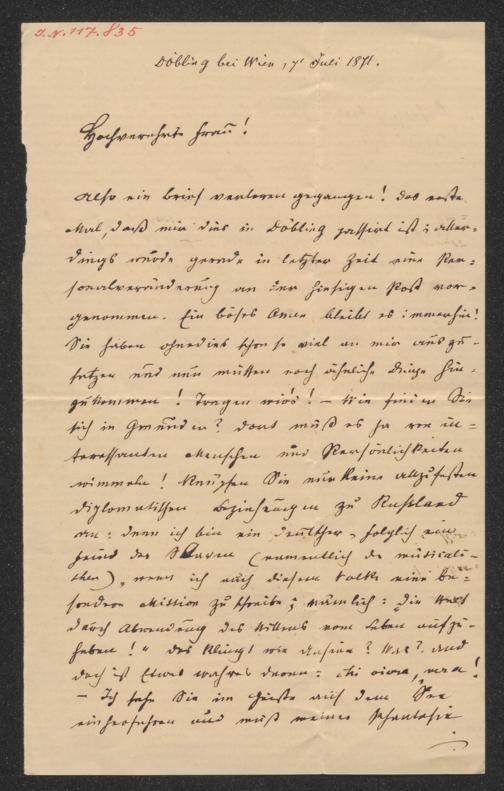 I.N. 117.835
Döbling bei Wien, 7' Juli 1871.
Hochverehrte Frau!
Also ein Brief verloren gegangen! Das erste
Mal, daß mir dies in Döbling passirt ist; aller-
dings wurde gerade in letzter Zeit eine Per-
sonalveränderung an der hiesigen Post vor-
genommen. Ein böses Omen bleibt es immerhin!
Sie haben ohnedies schon so viel an mir auszu-
setzen und nun müssen noch ähnliche Dinge hin-
zukommen! Tragen wir's! – Wie finden Sie
sich in Gmunden? Dort muß es ja von in-
teressanten Menschen und Persönlichkeiten
wimmeln! Knüpfen Sie nur keine allzufesten
diplomatischen Beziehungen zu Rußland
an: denn ich bin ein Deutscher, folglich ein
Feind der Slaven (namentlich der musicali-
schen), wenn ich auch diesem Volke eine be-
sondere Mission zuschreibe; nämlich: "die Welt
durch Abwendung des Willens vom Leben aufzu-
heben!" Das klingt wie Unsinn? Was? Und
doch ist Etwas wahres daran:
– Ich sehe Sie im Geiste auf dem See
einherfahren und muß meiner Phantasie